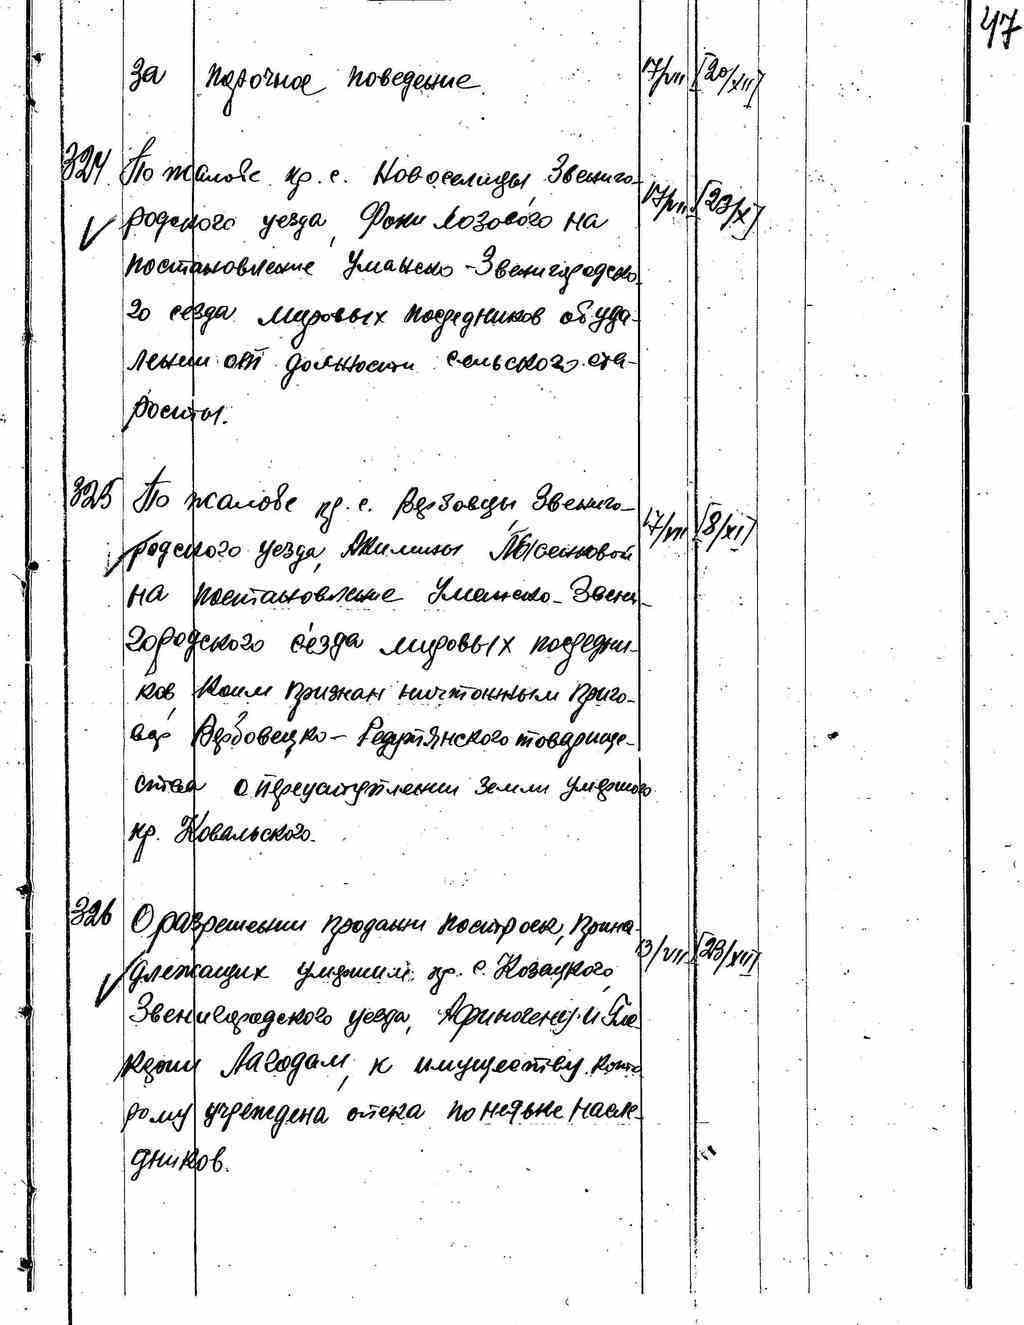 47
за порочное поведение 17/VII [20/XII]
324 По жалобе кр. с. Новоселицы Звениго- 17/VII [23/XI]
родского уезда, Фоки Лозового на
постановление Уманско-Звенигородско-
го сезда мировых посредников об уда-
лении от должности сельского ста-
росты.
325 По жалобе кр. с. Вербовцы, Звениго- 17/VII [8/XI]
родского уезда, Акилины
на постановление Уманско-Звени-
городского сезда мировых посредни-
ков, коим признан ничтожным приго-
вор Вербовецко-Редутянского товарище-
ства о переуступлении земли умершего
кр. Ковальского.
326 О разрешении продажи построек, прина- 13/VII [23/XII]
длежащих умершим кр. с. Козацкого,
Звенигородского уезда, Афиногену и
Лагодам, к имуществу кото-
рому учреждена опека по неявке насле-
дников.